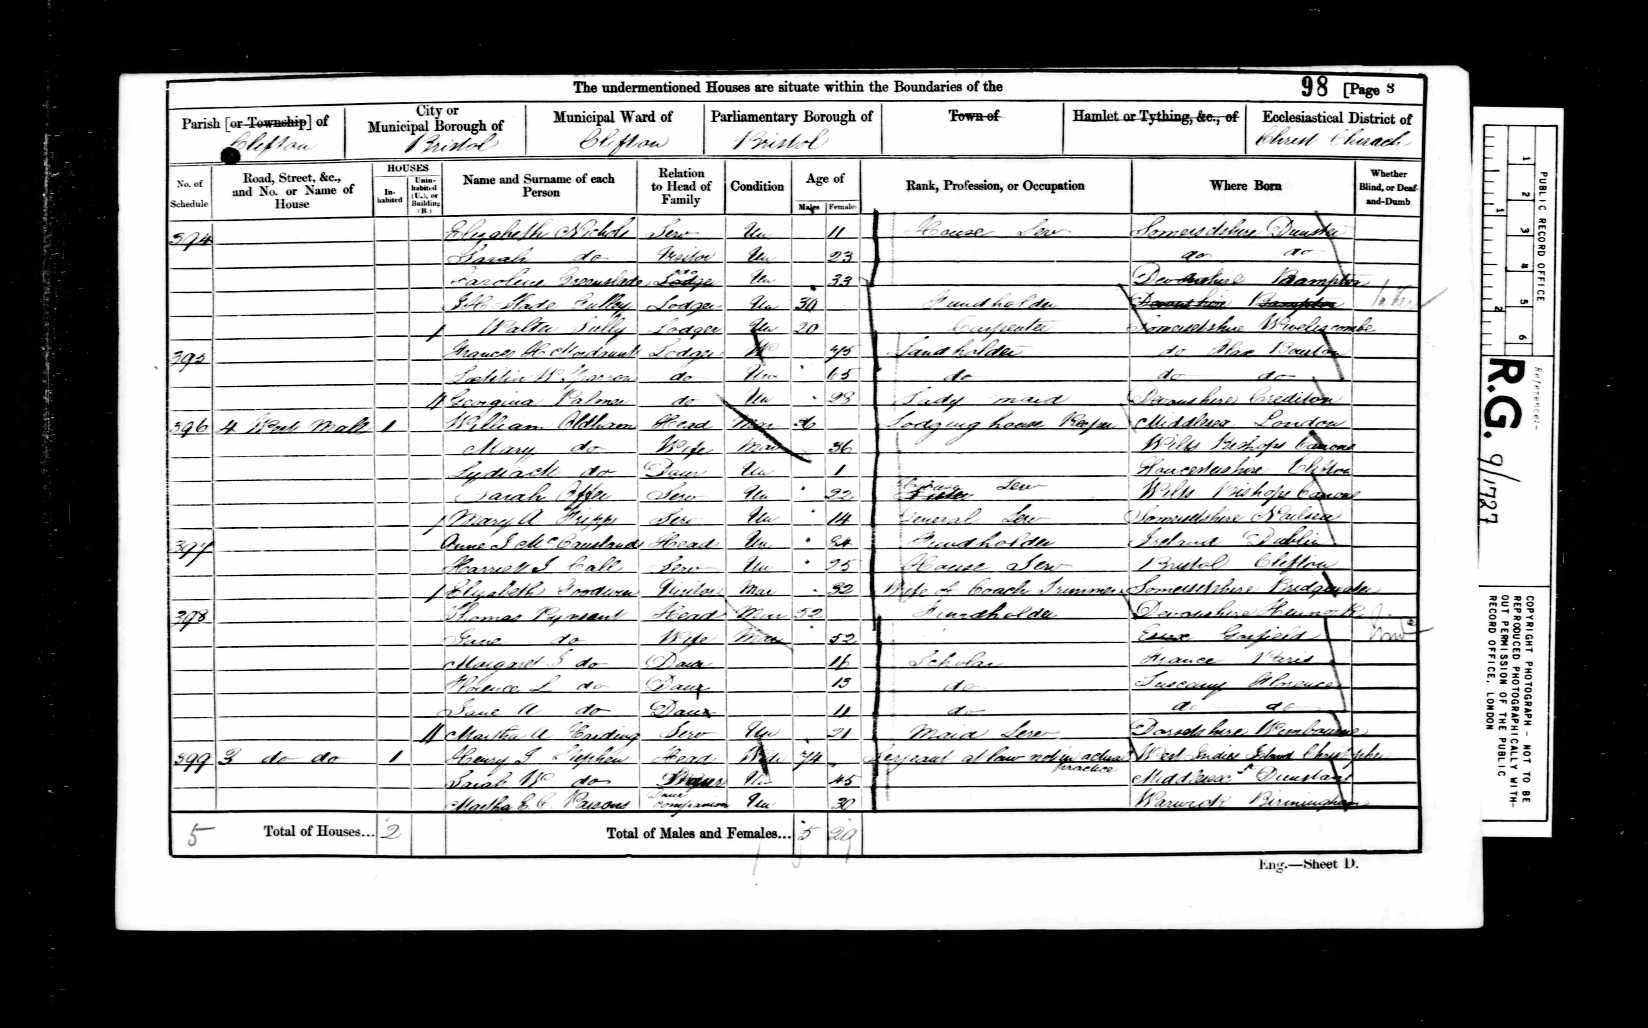 The undermentioned Houses are situate within the Boundaries of the
98 [Page
Parish [or Township] of
Clifton
City or Municipal Borough of
Bristol
Municipal Ward of
Clifton
Parliamentary Borough of
Bristol
Town of
Hamlet or Tything, &c., of
Ecclesiastical District of
Christ Church
No. of Schedule
Road, Street, &c., and No. or Name of House
HOUSES
Inhabited
Uninhabited (U.), or Building (B.)
Name and Surname of each Person
Relation to Head of Family
Condition
Age of
Males
Females
Rank, Profession, or Occupation
Where Born
Whether Blind, or Deaf-and-Dumb
394 Elizabeth Nichols Serv Un 11 House Serv Somersetshire Dunster
Sarah do Visitor Un 23 do do
Caroline Greenslade Un 33 Devonshire Bampton
Slade Lodger Un 30 Fundholder Devonshire Bampton
Walter Lodger Un 20 Carpenter Somersetshire Wiveliscombe
395 Frances Mordaunt Lodger W 75 Landholder do
do Un 65 do do do
Georgina Palmer do Un 28 Lady maid Devonshire Crediton
396 4 West Mall 1 William Oldham Head Mar 36 Lodging house Keeper Middlesex London
Mary do Wife Mar 36 Wilts Bishops Canons
Lydia M do Daur Un 1 Gloucestershire Clifton
Sarah Offer Serv Un 22 House Serv Wilts Bishops Canons
Mary A Fripps Serv Un 14 General Serv Somersetshire Nailsea
397 Anne J McCausland Head Un Fundholder Ireland Dublin
Harriett J Call Serv Un 25 House Serv Bristol Clifton
Elizabeth Goodwin Visitor Mar 32 Wife of Coach Trimmer Somersetshire Bridgwater
398 Thomas Head Mar 52 Fundholder Devonshire
Jane do Wife Mar 52 Essex Enfield
Margaret J do Daur 16 Scholar France Paris
Florence L do Daur 13 do Tuscany Florence
Jane A do Daur 11 do do do
Martha A Harding Serv Un 21 Maid Serv Dorsetshire Wimbourne
399 3 do do 1 Henry J Stephen Head Wid 74 Serjeant at law not in actual practice West Indies Island Christopher
Sarah W do Daur Un 45 Middlesex St Dunstans
Martha E C Parsons Companion Un 30 Warwick Birmingham
5 Total of Houses... 2
Total of Males and Females... 5 29
Eng.—Sheet D.
PUBLIC RECORD OFFICE
1 2 3 4 5 6
1 2
Reference:-
R.G. 9/1727
COPYRIGHT PHOTOGRAPH - NOT TO BE
REPRODUCED PHOTOGRAPHICALLY WITH-
OUT PERMISSION OF THE PUBLIC
RECORD OFFICE, LONDON